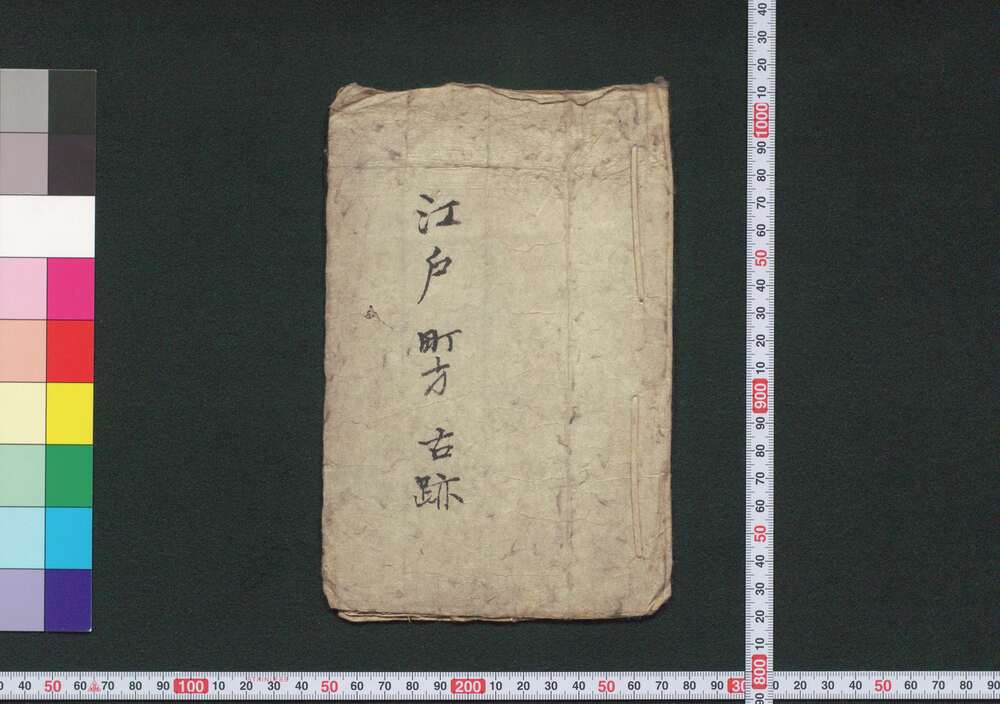 江戸町方古跡
40
30
20
10
1000
90
80
70
60
50
40
30
20
10
900
90
80
70
60
50
40
30
20
10
800
90
0 40 50 60 70 80 90 100 10 20 30 40 50 60 70 80 90 200 10 20 30 40 50 60 70 80 90 30 0 20 30 40 50 60 70 80 90
STAINLESS